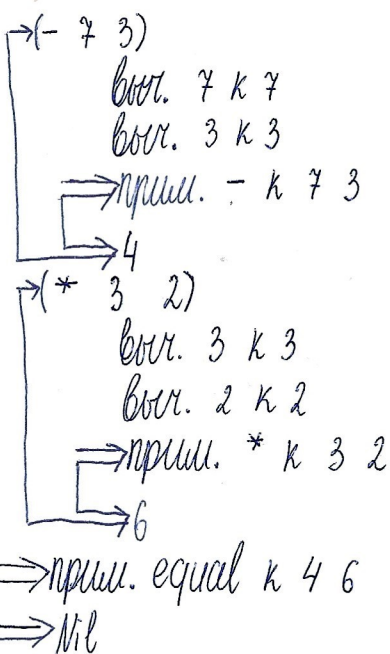 (- 7 3)
выч. 7 к 7
выч. 3 к 3
прим. - к 7 3
4
(* 3 2)
выч. 3 к 3
выч. 2 к 2
прим. * к 3 2
6
прим. equal к 4 6
Nil